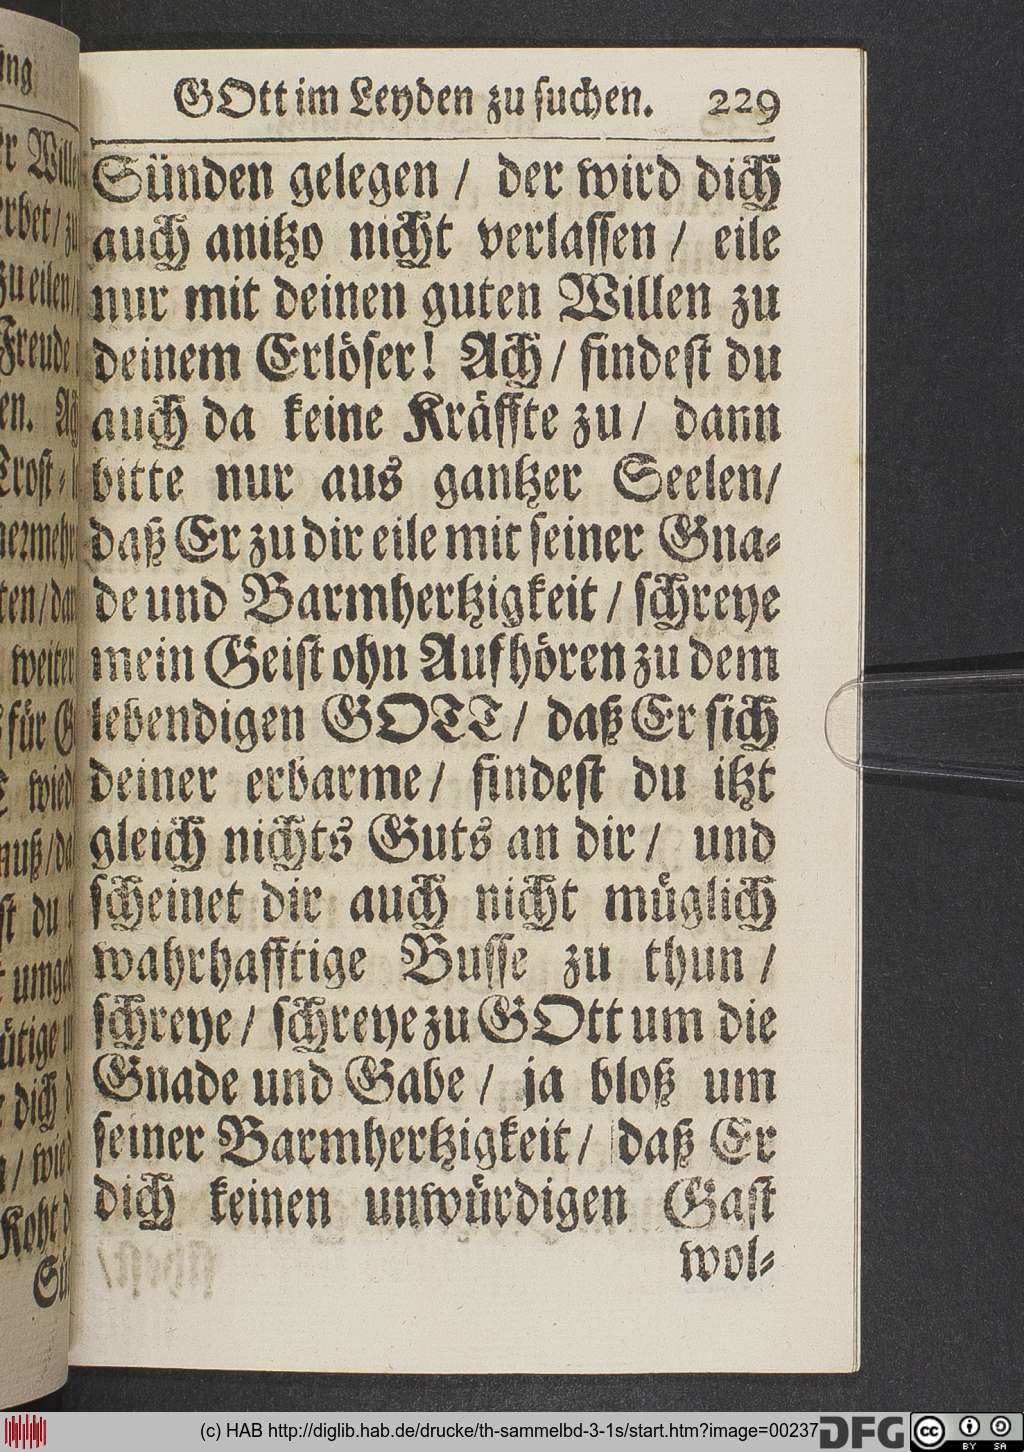 GOtt im Leyden zu suchen. 229
Sünden gelegen / der wird dich
auch anitzo nicht verlassen / eile
nur mit deinen guten Willen zu
deinem Erlöser! Ach / findest du
auch da keine Kräffte zu / dann
bitte nur aus gantzer Seelen /
daß Er zu dir eile mit seiner Gna-
de und Barmhertzigkeit / schreye
mein Geist ohn Aufhören zu dem
lebendigen GOTT / daß Er sich
deiner erbarme / findest du itzt
gleich nichts Guts an dir / und
scheinet dir auch nicht müglich
wahrhafftige Busse zu thun /
schreye / schreye zu GOtt um die
Gnade und Gabe / ja bloß um
seiner Barmhertzigkeit / daß Er
dich keinen unwürdigen Gast
wol-
(c) HAB http://diglib.hab.de/drucke/th-sammelbd-3-1s/start.htm?image=00237
DFG
cc BY SA